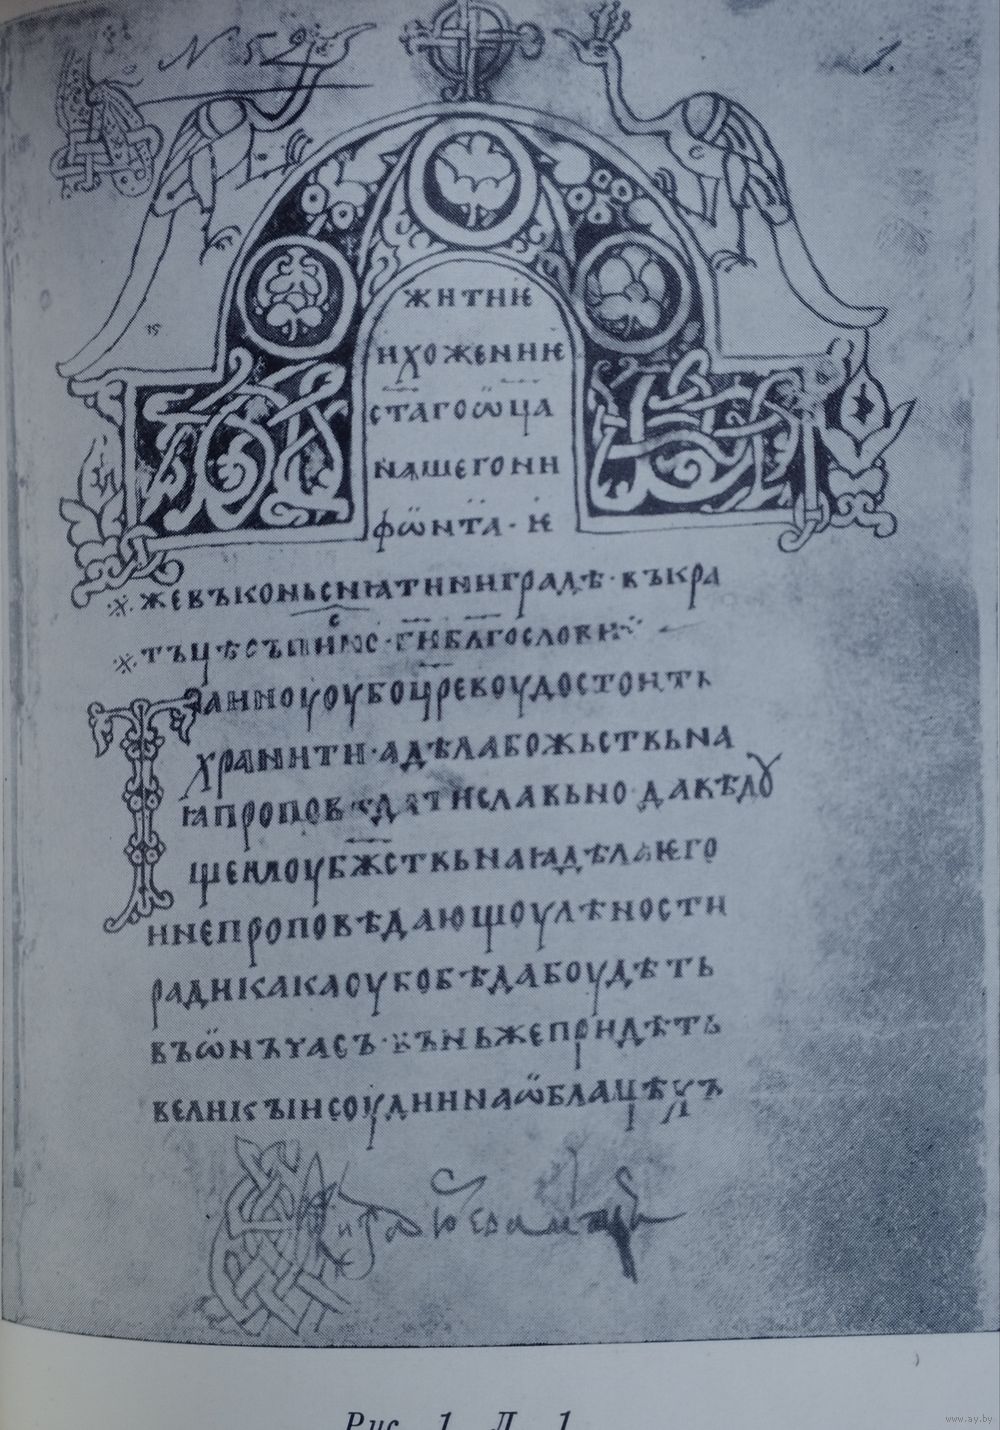 N 52
1.
ЖИТИѤ
ИХОЖЕНИѤ
СТАГОѾЦА
НАШЕГОНИ
ФѠНТА · Ѥ
ЖЕВЪКОНЬСНѢАТИНИГРАДѢ · ВЪКРА
ТЪЦѢСЪПИ҃СНС · Г҃ИБЛАГОСЛОВИ
ТАИНОУОУБОЦР҃ЕВОУДОСТОИТЬ
ХРАНИТИ · АДѢЛАБОЖЬСТВЬНА
ꙖПРОПОВѢДАТИСЛАВЬНО · ДАВѢДꙊ
ЩЕНИОУБЖ҃СТВЬНАꙖДѢЛАѤГО
НИЕПРОПОВѢДАЮЩОУЛѢНОСТИ
РАДИКАКАОУБОБѢДАБОУДѢТЬ
ВЪѠНЪЧАСЪ · ВЪНЬЖЕПРИДѢТЬ
ВЕЛИКЪИСОУДИИНАѠБЛАЦѢХЪ
Рис. 1. Л. 1
www.ay.by